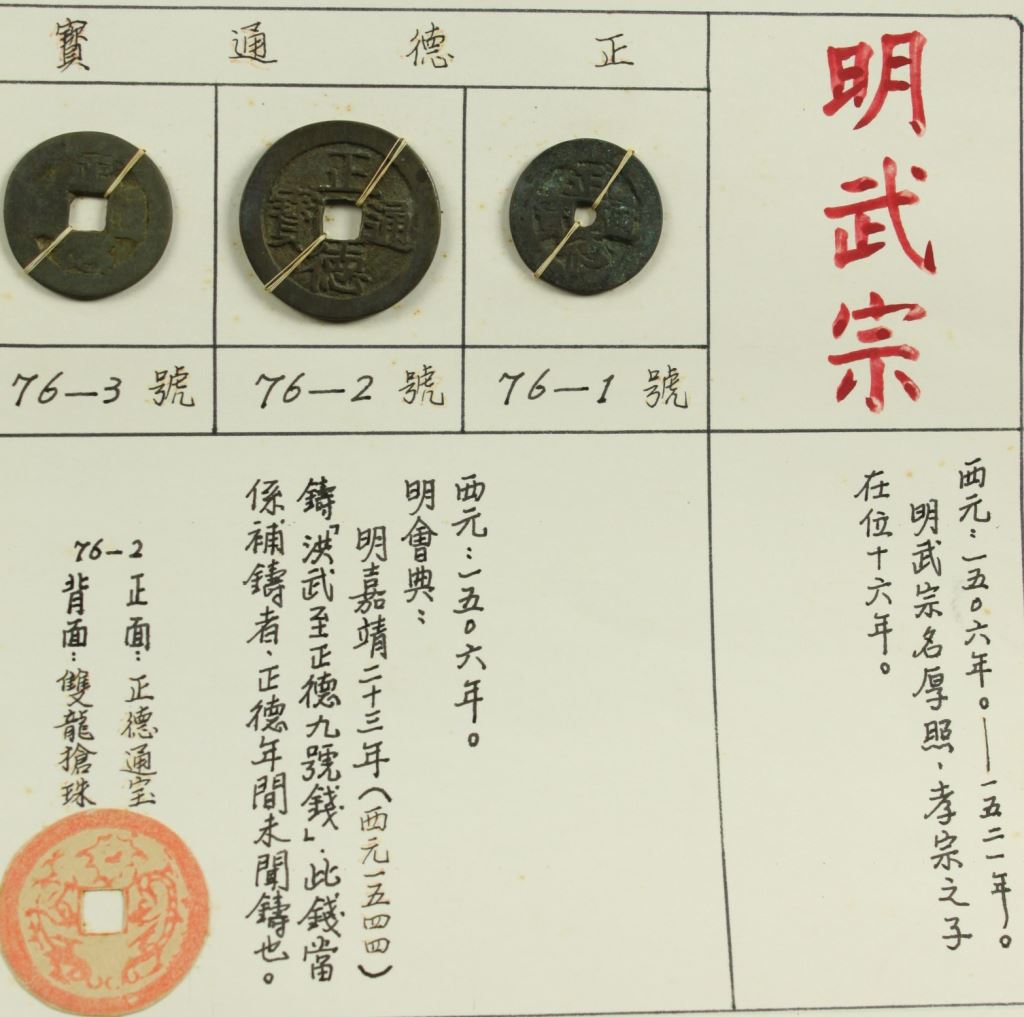 明武宗
正德通寳
正
德
通
寳
正
德
通
寳
正
76-1 號
76-2 號
76-3 號
西元：一五०六年。——一五二一年。
明武宗名厚照、孝宗之子
在位十六年。
西元：一五०六年。
明會典：
明嘉靖二十三年（西元一五四四）
鑄「洪武至正德九號錢」．此錢當
係補鑄者、正德年間未聞鑄也。
76-2
正面：正德通宝
背面：雙龍搶珠